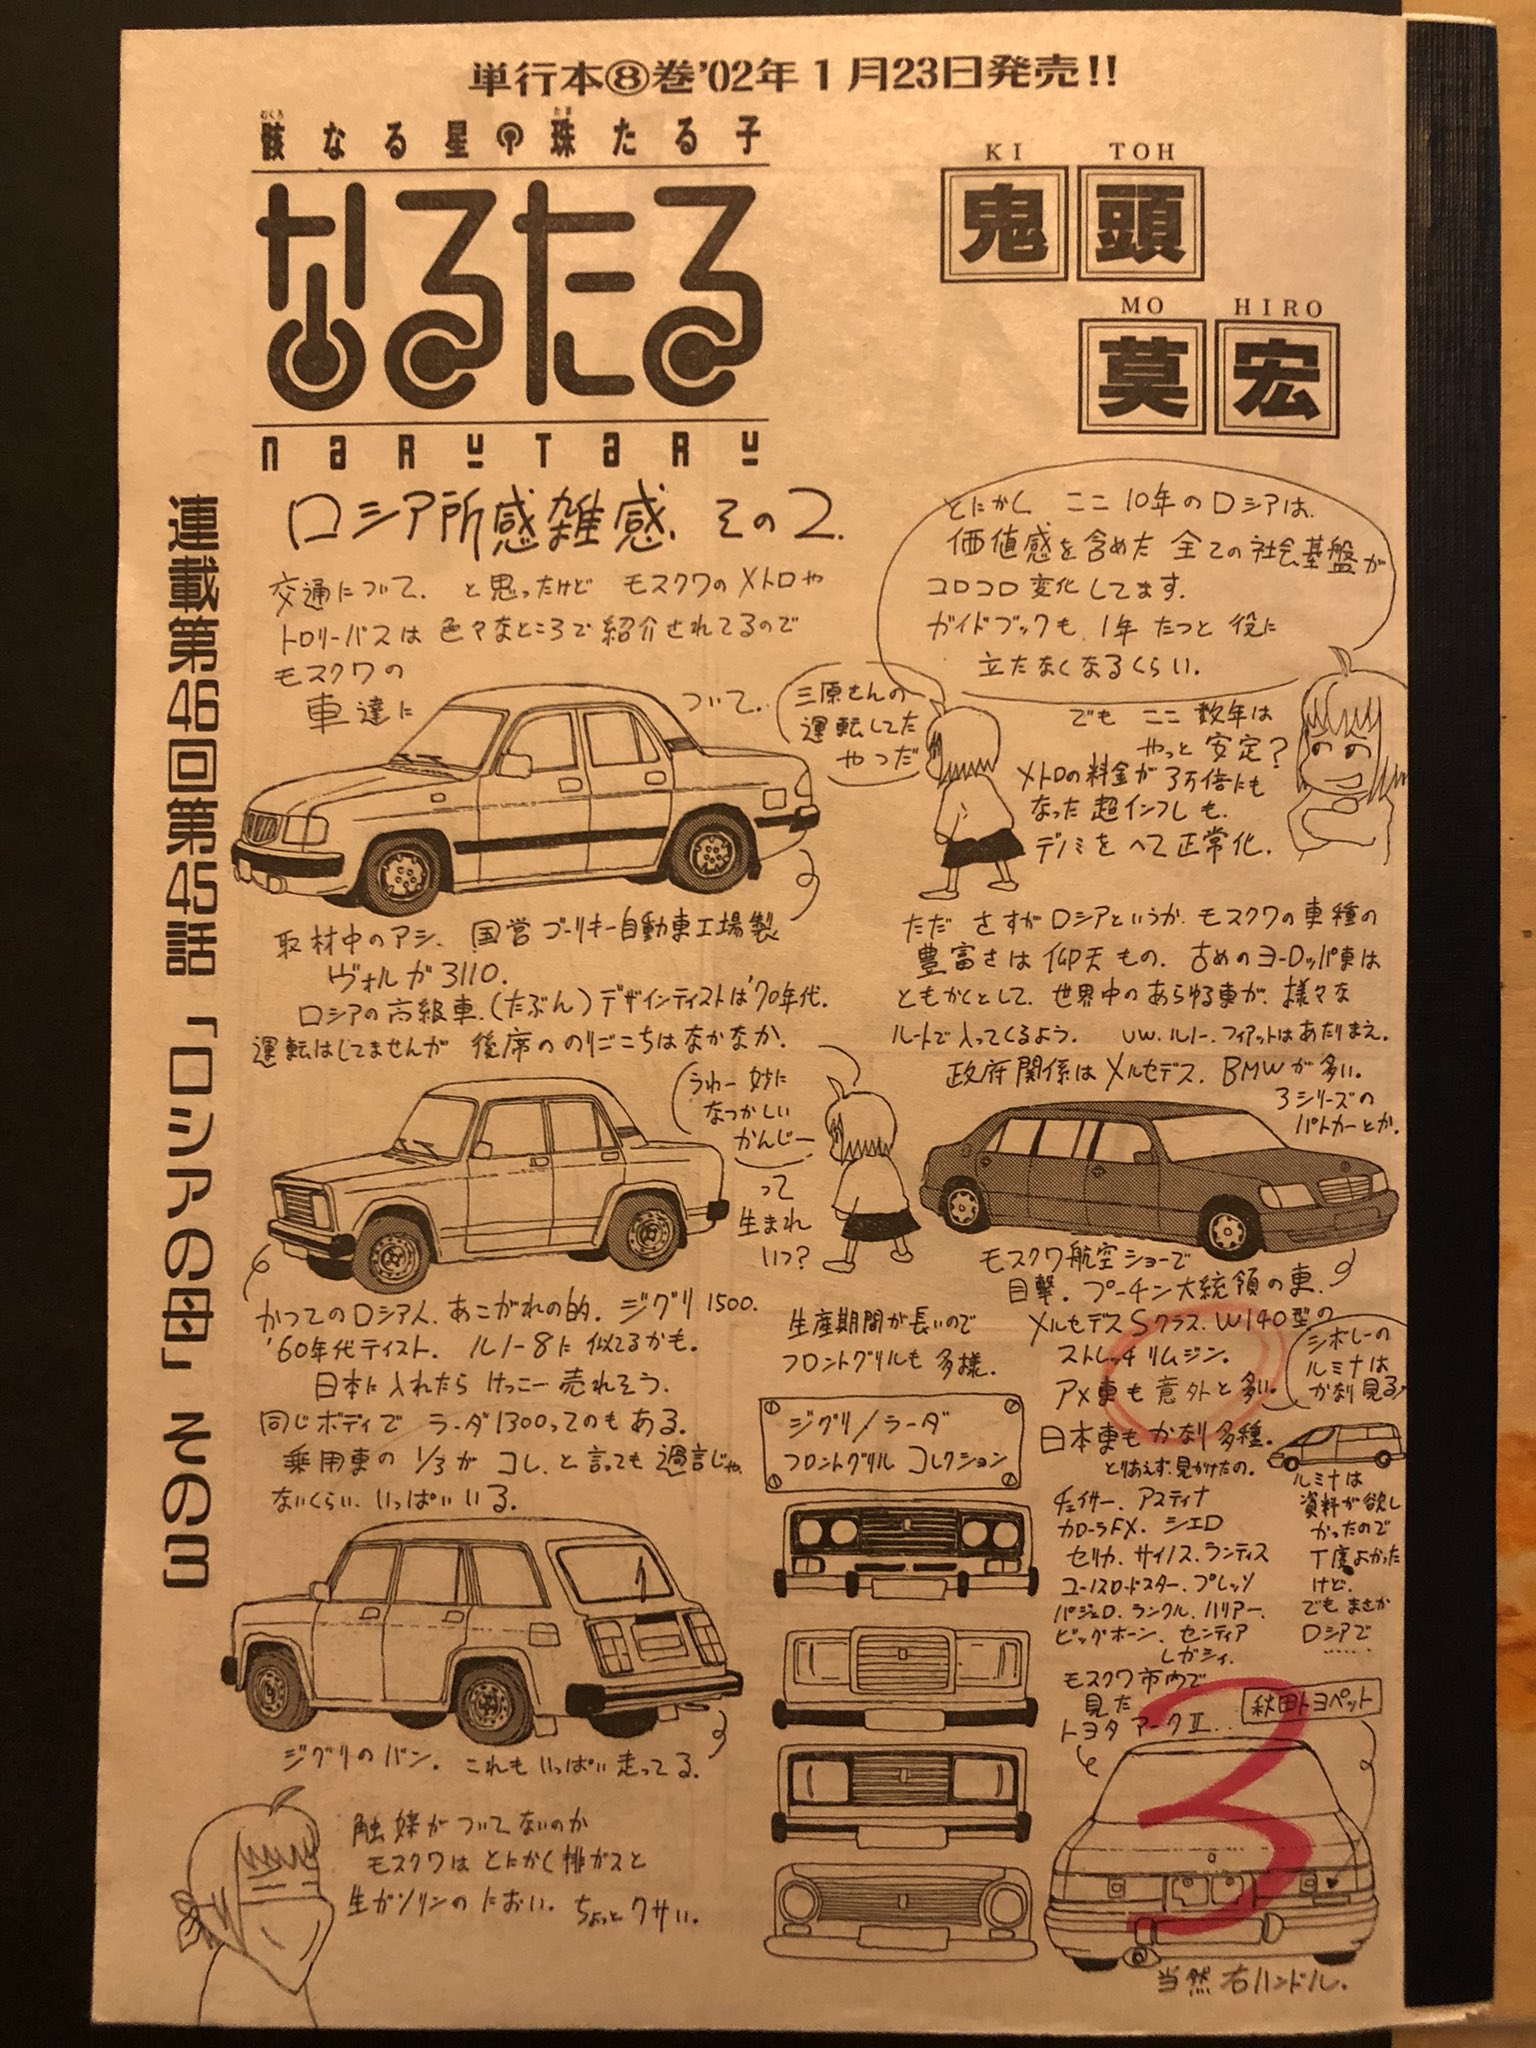 単行本⑧巻'02年1月23日発売!!
骸なる星 珠たる子
むくろ
たま
なるたる
NARUTARU
KI TOH
鬼頭
MO HIRO
莫宏
連載第46回第45話「ロシアの母」その3
ロシア所感雑感、その2.
交通について. と思ったけど モスクワのメトロや
トロリーバスは 色々なところで紹介されてるので
モスクワの
車達に
ついて.
三原さんの
運転してた
やつだ
とにかく ここ10年のロシアは、
価値感を含めた 全ての社会基盤が
コロコロ変化してます.
ガイドブックも、1年 たつと 役に
立たなくなるくらい.
でも ここ 数年は
やっと 安定?
メトロの料金が 3万倍にも
なった 超インフレも、
デノミをへて正常化.
取材中のアシ、国営ゴーリキー自動車工場製
ヴォルガ3110.
ロシアの高級車.(たぶん)デザインティストは'70年代.
運転はしてませんが 後席ののりごこちはなかなか.
ただ さすがロシアというか、モスクワの車種の
豊富さは 仰天もの. 古めのヨーロッパ車は
ともかくとして、世界中のあらゆる車が、様々な
ルートで入ってくるよう. VW、ルノー、フィアットはあたりまえ.
政府関係は メルセデス、BMWが多い.
3シリーズの
パトカーとか.
うわー 妙に
なつかしい
かんじー
って
生まれ
いつ?
モスクワ航空ショーで
目撃. プーチン大統領の車.
メルセデスSクラス、W140型の
ストレッチ リムジン.
アメ車も 意外と多い.
シボレーの
ルミナは
かなり見る
かつてのロシア人、あこがれの的. ジグリ1500.
'60年代ティスト. ルノー8に 似てるかも.
日本に入れたら けっこー売れそう.
同じボディで ラーダ1300ってのもある.
乗用車の 1/3が コレ、と言っても 過言じゃ
ないくらい、いっぱいいる.
生産期間が長いので
フロントグリルも 多様.
ジグリ/ラーダ
フロントグリル コレクション
日本車も かなり多種.
とりあえず、見かけたの.
チェイサー、アスティナ
カローラFX、シエロ
セリカ、サイノス、ランティス
ユーノスロードスター、プレッソ
パジェロ、ランクル、ハリアー、
ビッグホーン、センティア
レガシィ.
ルミナは
資料が欲し
かったので
丁度よかった
けど、
でも まさか
ロシアで
……
モスクワ市内で
見た
トヨタ マークⅡ..
秋田トヨペット
3
当然 右ハンドル.
ジグリのバン. これも いっぱい 走ってる.
触媒が ついてないのか
モスクワは とにかく排ガスと
生ガソリンの におい. ちょっとクサい.